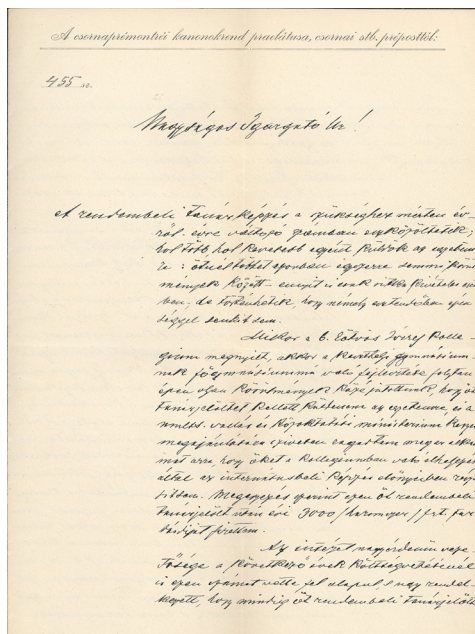 A csornapremontréi kanonokrend praelátusa, csornai stb. préposttól:
455 sz.
Nagyságos Igazgató Úr!
A rendembeli tanárképzés a szükséghez mérten év-
ről-évre változó számban eszközöltetik;
hol több, hol kevesebb egyént küldök az egyetem-
re: ötnél többet azonban egyszerre semmi körül-
mények között - ennyit is csak ritka kivételes eset-
ben; de történhetik, hogy némely esztendőben épen
séggel senkit sem.
Mikor a b. Eötvös József Colle-
gium megnyílt, akkor a keszthelyi gymnásium-
nak főgymnásiummá való fejlesztése folytán
épen olyan körülmények közé jutottunk, hogy öt
tanárjelöltet kellett küldenem az egyetemre, és a
vallás és közoktatási ministerium
megajánlására szívesen ragadtam meg az alkal-
mat arra, hogy őket a kollegiumban való elhelyezés
által az internátusbeli képzés előnyeiben része-
sítsem. Megegyezés szerint ezen öt rendembeli
tanárjelölt után évi 3000 /háromezer/ frt. tar-
tásdíjat fizettem.
Az intézet nagyérdemű veze-
tősége a következő évek költségvetésénél
is ezen számot vette fel alapul, s úgy rendel-
kezett, hogy mindig öt rendembeli tanárjelölt